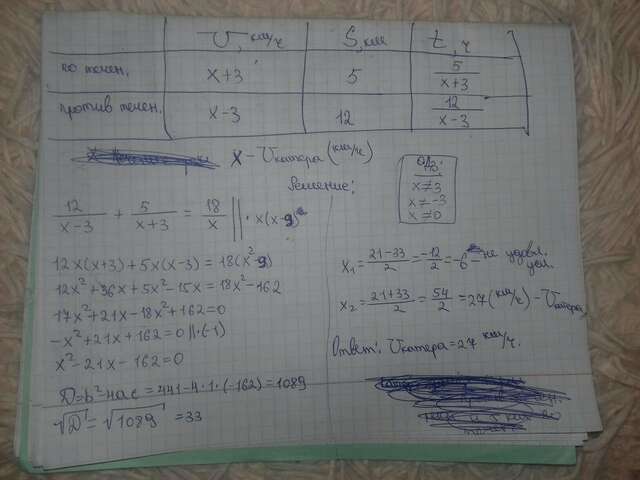 V, км/ч S, км t, ч
по течен. x+3 5 5/(x+3)
против течен. x-3 12 12/(x-3)
x - Vкатера (км/ч)
Решение:
ОДЗ:
x≠3
x≠-3
x≠0
12/(x-3) + 5/(x+3) = 18/x || · x(x²-9)
12x(x+3)+5x(x-3)=18(x²-9)
12x²+36x+5x²-15x=18x²-162
17x²+21x-18x²+162=0
-x²+21x+162=0 ||·(-1)
x²-21x-162=0
D=b²-4ac=441-4·1·(-162)=1089
√D=√1089=33
x₁=(21-33)/2=-12/2=-6 - не удовл. усл.
x₂=(21+33)/2=54/2=27(км/ч)-Vкатера
Ответ: Vкатера=27 км/ч.